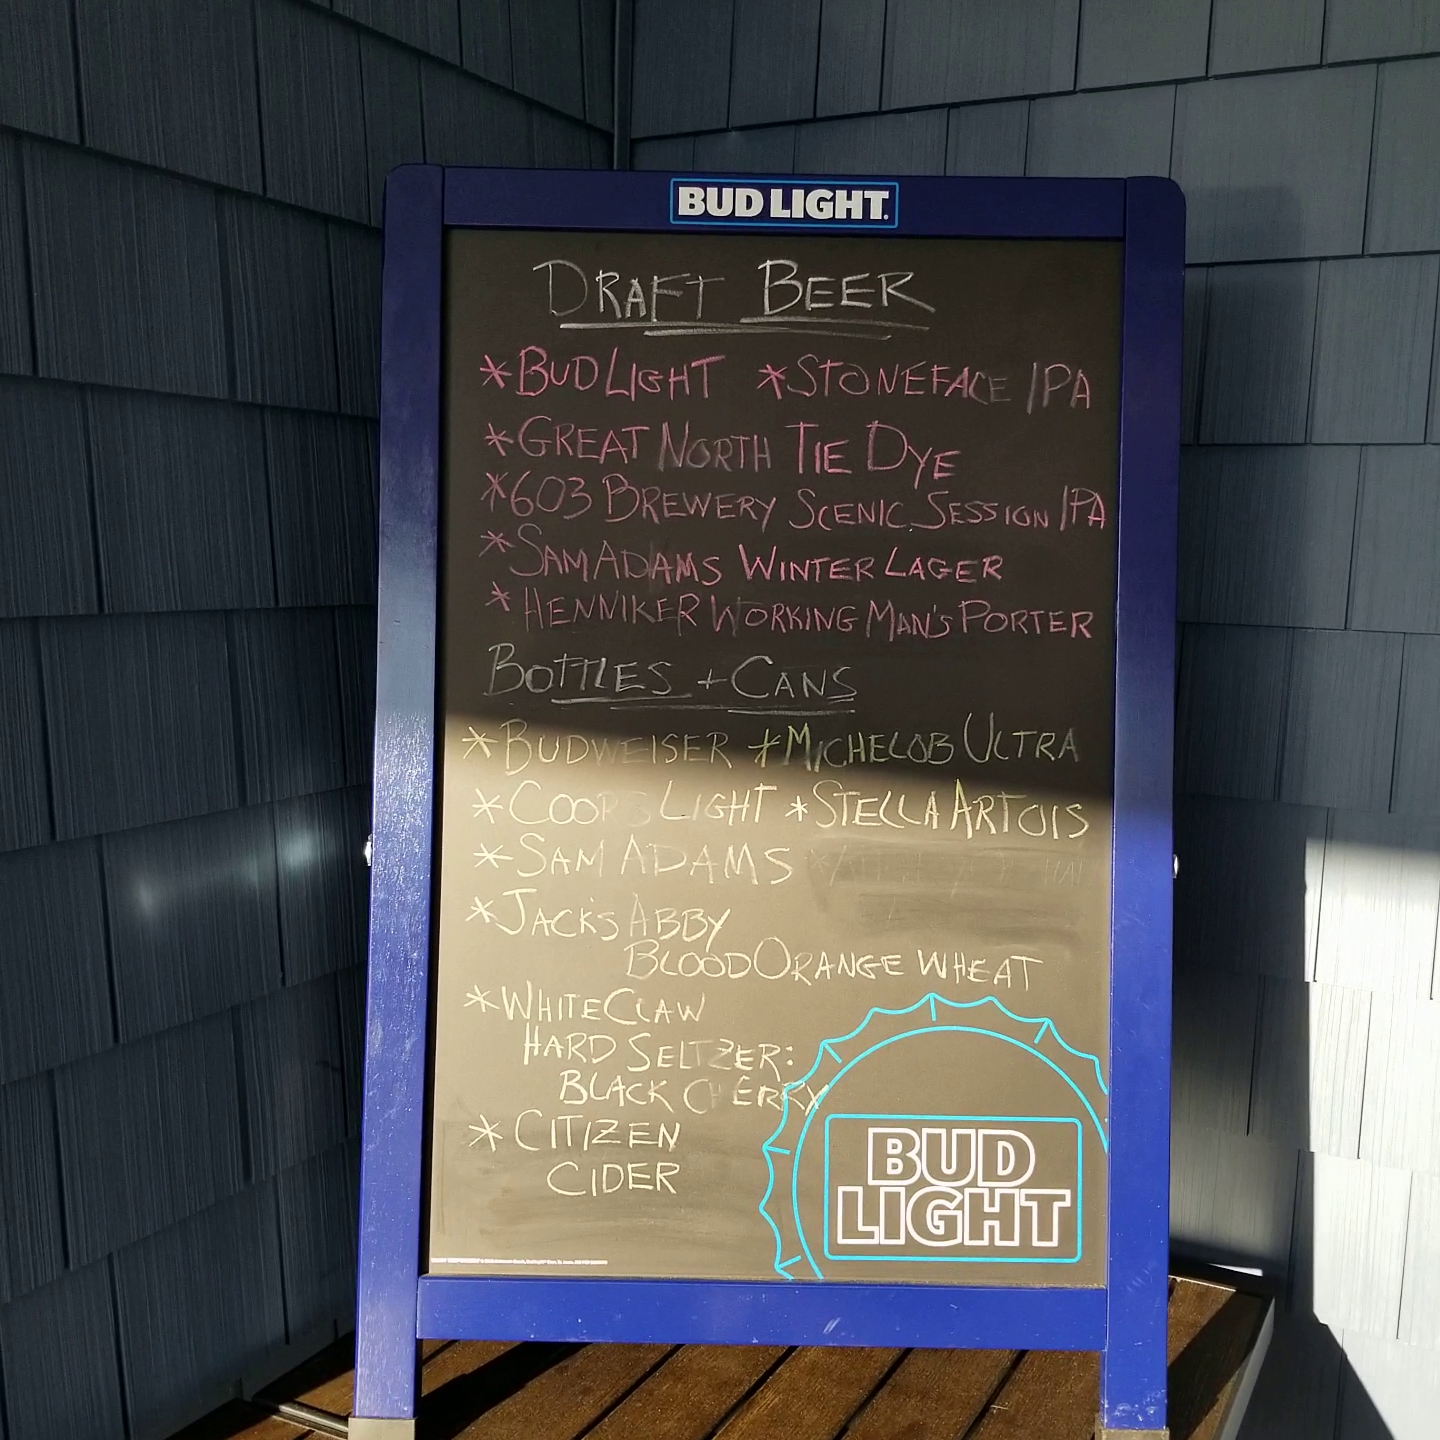 BUD LIGHT.
DRAFT BEER
*BUD LIGHT *STONEFACE IPA
*GREAT NORTH TIE DYE
*603 BREWERY SCENIC SESSION IPA
*SAM ADAMS WINTER LAGER
*HENNIKER WORKING MAN'S PORTER
BOTTLES + CANS
*BUDWEISER *MICHELOB ULTRA
*COORS LIGHT *STELLA ARTOIS
*SAM ADAMS
*JACK'S ABBY
BLOOD ORANGE WHEAT
*WHITE CLAW
HARD SELTZER:
BLACK CHERRY
*CITIZEN
CIDER
BUD
LIGHT